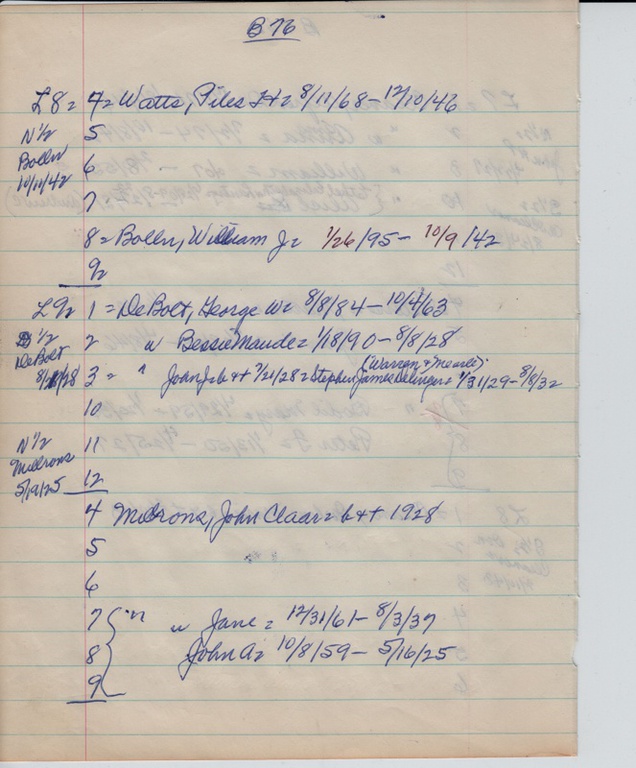 B 76
L 8 = 4 = Watts, Piles H = 8/11/68 - 12/10/46
N 1/2 5
Bolln 6
10/11/42
7
8 = Bolln, William J = 1/26/95 - 10/9/42
9
L 9 = 1 = DeBolt, George W = 8/8/84 - 10/4/63
S 1/2 2 " Bessie Maude = 1/18/90 - 8/8/28
DeBolt (Warren + Mearle)
8/ /28 3 = " John Jr b + t 7/21/28 = Stephen James Delinger = 1/31/29 - 8/8/32
10
N 1/2 11
Midrons
5/19/25 12
4 Midrons, John Claar = b + t 1928
5
6
7 " " Jane = 12/31/61 - 8/3/37
8 John A = 10/8/59 - 5/16/25
9